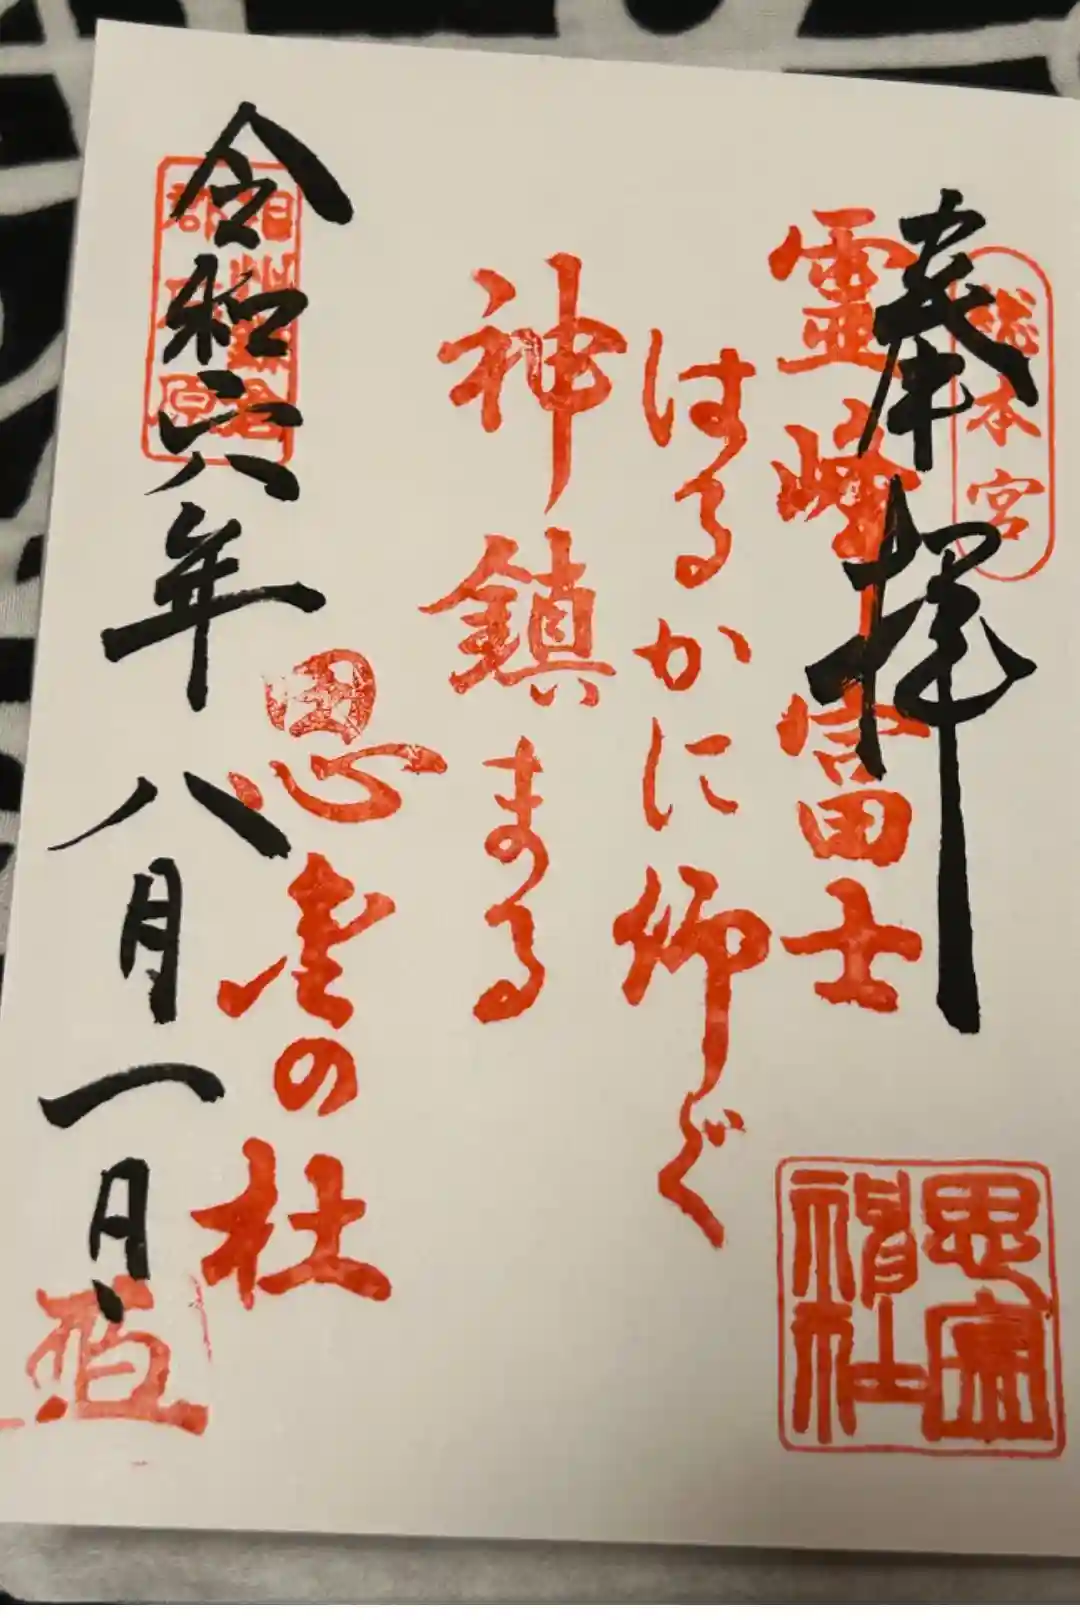 総本宮
奉拝
霊峰富士
はるかに仰ぐ
神鎮まる
思金の杜
令和六年八月一日
思金
神社